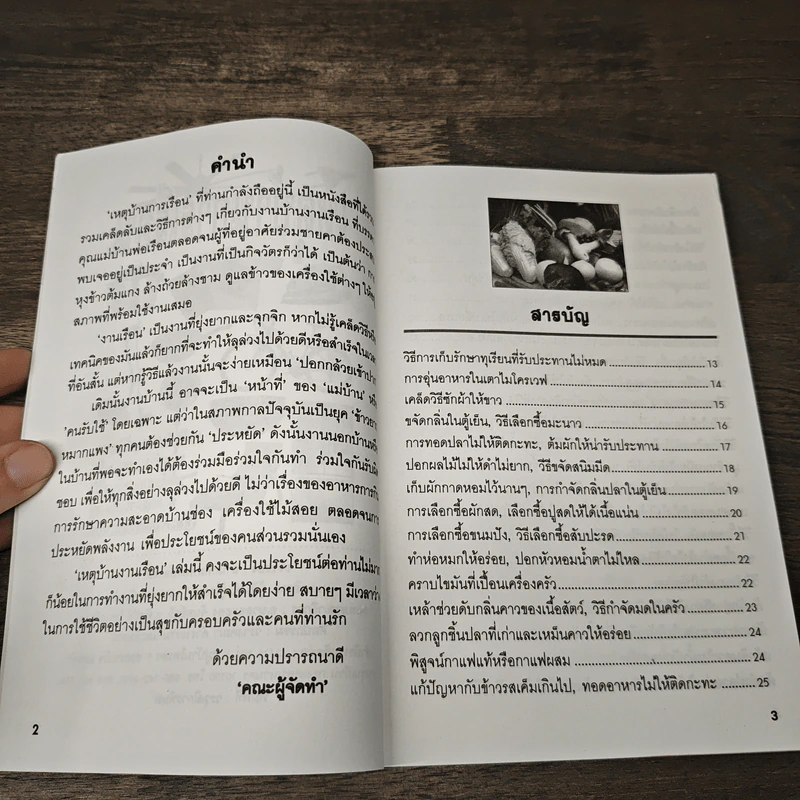 คำนำ
'เหตุบ้านการเรือน' ที่ท่านกำลังถืออยู่นี้ เป็นหนังสือที่ได้
รวมเคล็ดลับและวิธีการต่างๆ เกี่ยวกับงานบ้านงานเรือน
คุณแม่บ้านพ่อเรือนตลอดจนผู้ที่อยู่อาศัยร่วมชายคาต้อง
พบเจออยู่เป็นประจำ เป็นงานที่เป็นกิจวัตรก็ว่าได้ เป็นต้นว่า
หุงข้าวต้มแกง ล้างถ้วยล้างชาม ดูแลข้าวของเครื่องใช้ต่างๆ
สภาพที่พร้อมใช้งานเสมอ
'งานเรือน' เป็นงานที่ยุ่งยากและจุกจิก หากไม่รู้เคล็ดวิธี
เทคนิคของมันแล้วก็ยากที่จะทำให้ลุล่วงไปด้วยดีหรือสำเร็จใน
ที่อันสั้น แต่หากรู้วิธีแล้วงานนั้นจะง่ายเหมือน 'ปอกกล้วยเข้า
เดิมนั้นงานบ้านนี้ อาจจะเป็น 'หน้าที่' ของ 'แม่บ้าน'
'คนรับใช้' โดยเฉพาะ แต่ว่าในสภาพกาลปัจจุบันเป็นยุค
หมากแพง' ทุกคนต้องช่วยกัน 'ประหยัด' ดังนั้นงานนอกบ้าน
ในบ้านที่พอจะทำเองได้ต้องร่วมมือร่วมใจกันทำ ร่วมใจกัน
ชอบ เพื่อให้ทุกสิ่งอย่างลุล่วงไปด้วยดี ไม่ว่าเรื่องของอาหารการ
การรักษาความสะอาดบ้านช่อง เครื่องใช้ไม้สอย ตลอดจน
ประหยัดพลังงาน เพื่อประโยชน์ของคนส่วนรวมนั่นเอง
'เหตุบ้านงานเรือน' เล่มนี้ คงจะเป็นประโยชน์ต่อท่านไม่
ก็น้อยในการทำงานที่ยุ่งยากให้สำเร็จได้โดยง่าย สบายๆ มีเวลา
ในการใช้ชีวิตอย่างเป็นสุขกับครอบครัวและคนที่ท่านรัก
ด้วยความปรารถนาดี
'คณะผู้จัดทำ'
2
สารบัญ
วิธีการเก็บรักษาทุเรียนที่รับประทานไม่หมด ........ 13
การอุ่นอาหารในเตาไมโครเวฟ ........ 14
เคล็ดวิธีซักผ้าให้ขาว ........ 15
ขจัดกลิ่นในตู้เย็น, วิธีเลือกซื้อมะนาว ........ 16
การทอดปลาไม่ให้ติดกะทะ, ต้มผักให้น่ารับประทาน ........ 17
ปอกผลไม้ไม่ให้ดำไม่ยาก, วิธีขจัดสนิมมีด ........ 18
เก็บผักกาดหอมไว้นานๆ, การกำจัดกลิ่นปลาในตู้เย็น ........ 19
การเลือกซื้อผักสด, เลือกซื้อปูสดให้ได้เนื้อแน่น ........ 20
การเลือกซื้อขนมปัง, วิธีเลือกซื้อสับปะรด ........ 21
ทำห่อหมกให้อร่อย, ปอกหัวหอมน้ำตาไม่ไหล ........ 22
คราบไขมันที่เปื้อนเครื่องครัว ........ 22
เหล้าช่วยดับกลิ่นคาวของเนื้อสัตว์, วิธีกำจัดมดในครัว ........ 23
ลวกลูกชิ้นปลาที่เก่าและเหม็นคาวให้อร่อย ........ 24
พิสูจน์กาแฟแท้หรือกาแฟผสม ........ 24
แก้ปัญหากับข้าวรสเค็มเกินไป, ทอดอาหารไม่ให้ติดกะทะ ........ 25
3